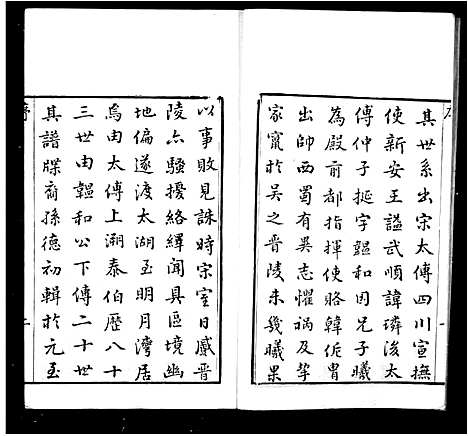 其世系出宋太傅四川宣撫
使新安王諡武順諱璘後太
傅仲子挺字韞和因兄子曦
為殿前都指揮使賂韓侂胄
出帥西蜀有異志懼禍及挈
家寓於吳之晉陵未幾曦果
以事敗見誅時宋室日蹙晉
陵亦騷擾絡繹聞具區境幽
地偏遂渡太湖至明月灣居
焉由太傅上溯泰伯歷八十
三世由韞和公下傳二十世
其譜牒裔孫德初輯於元至
序
二